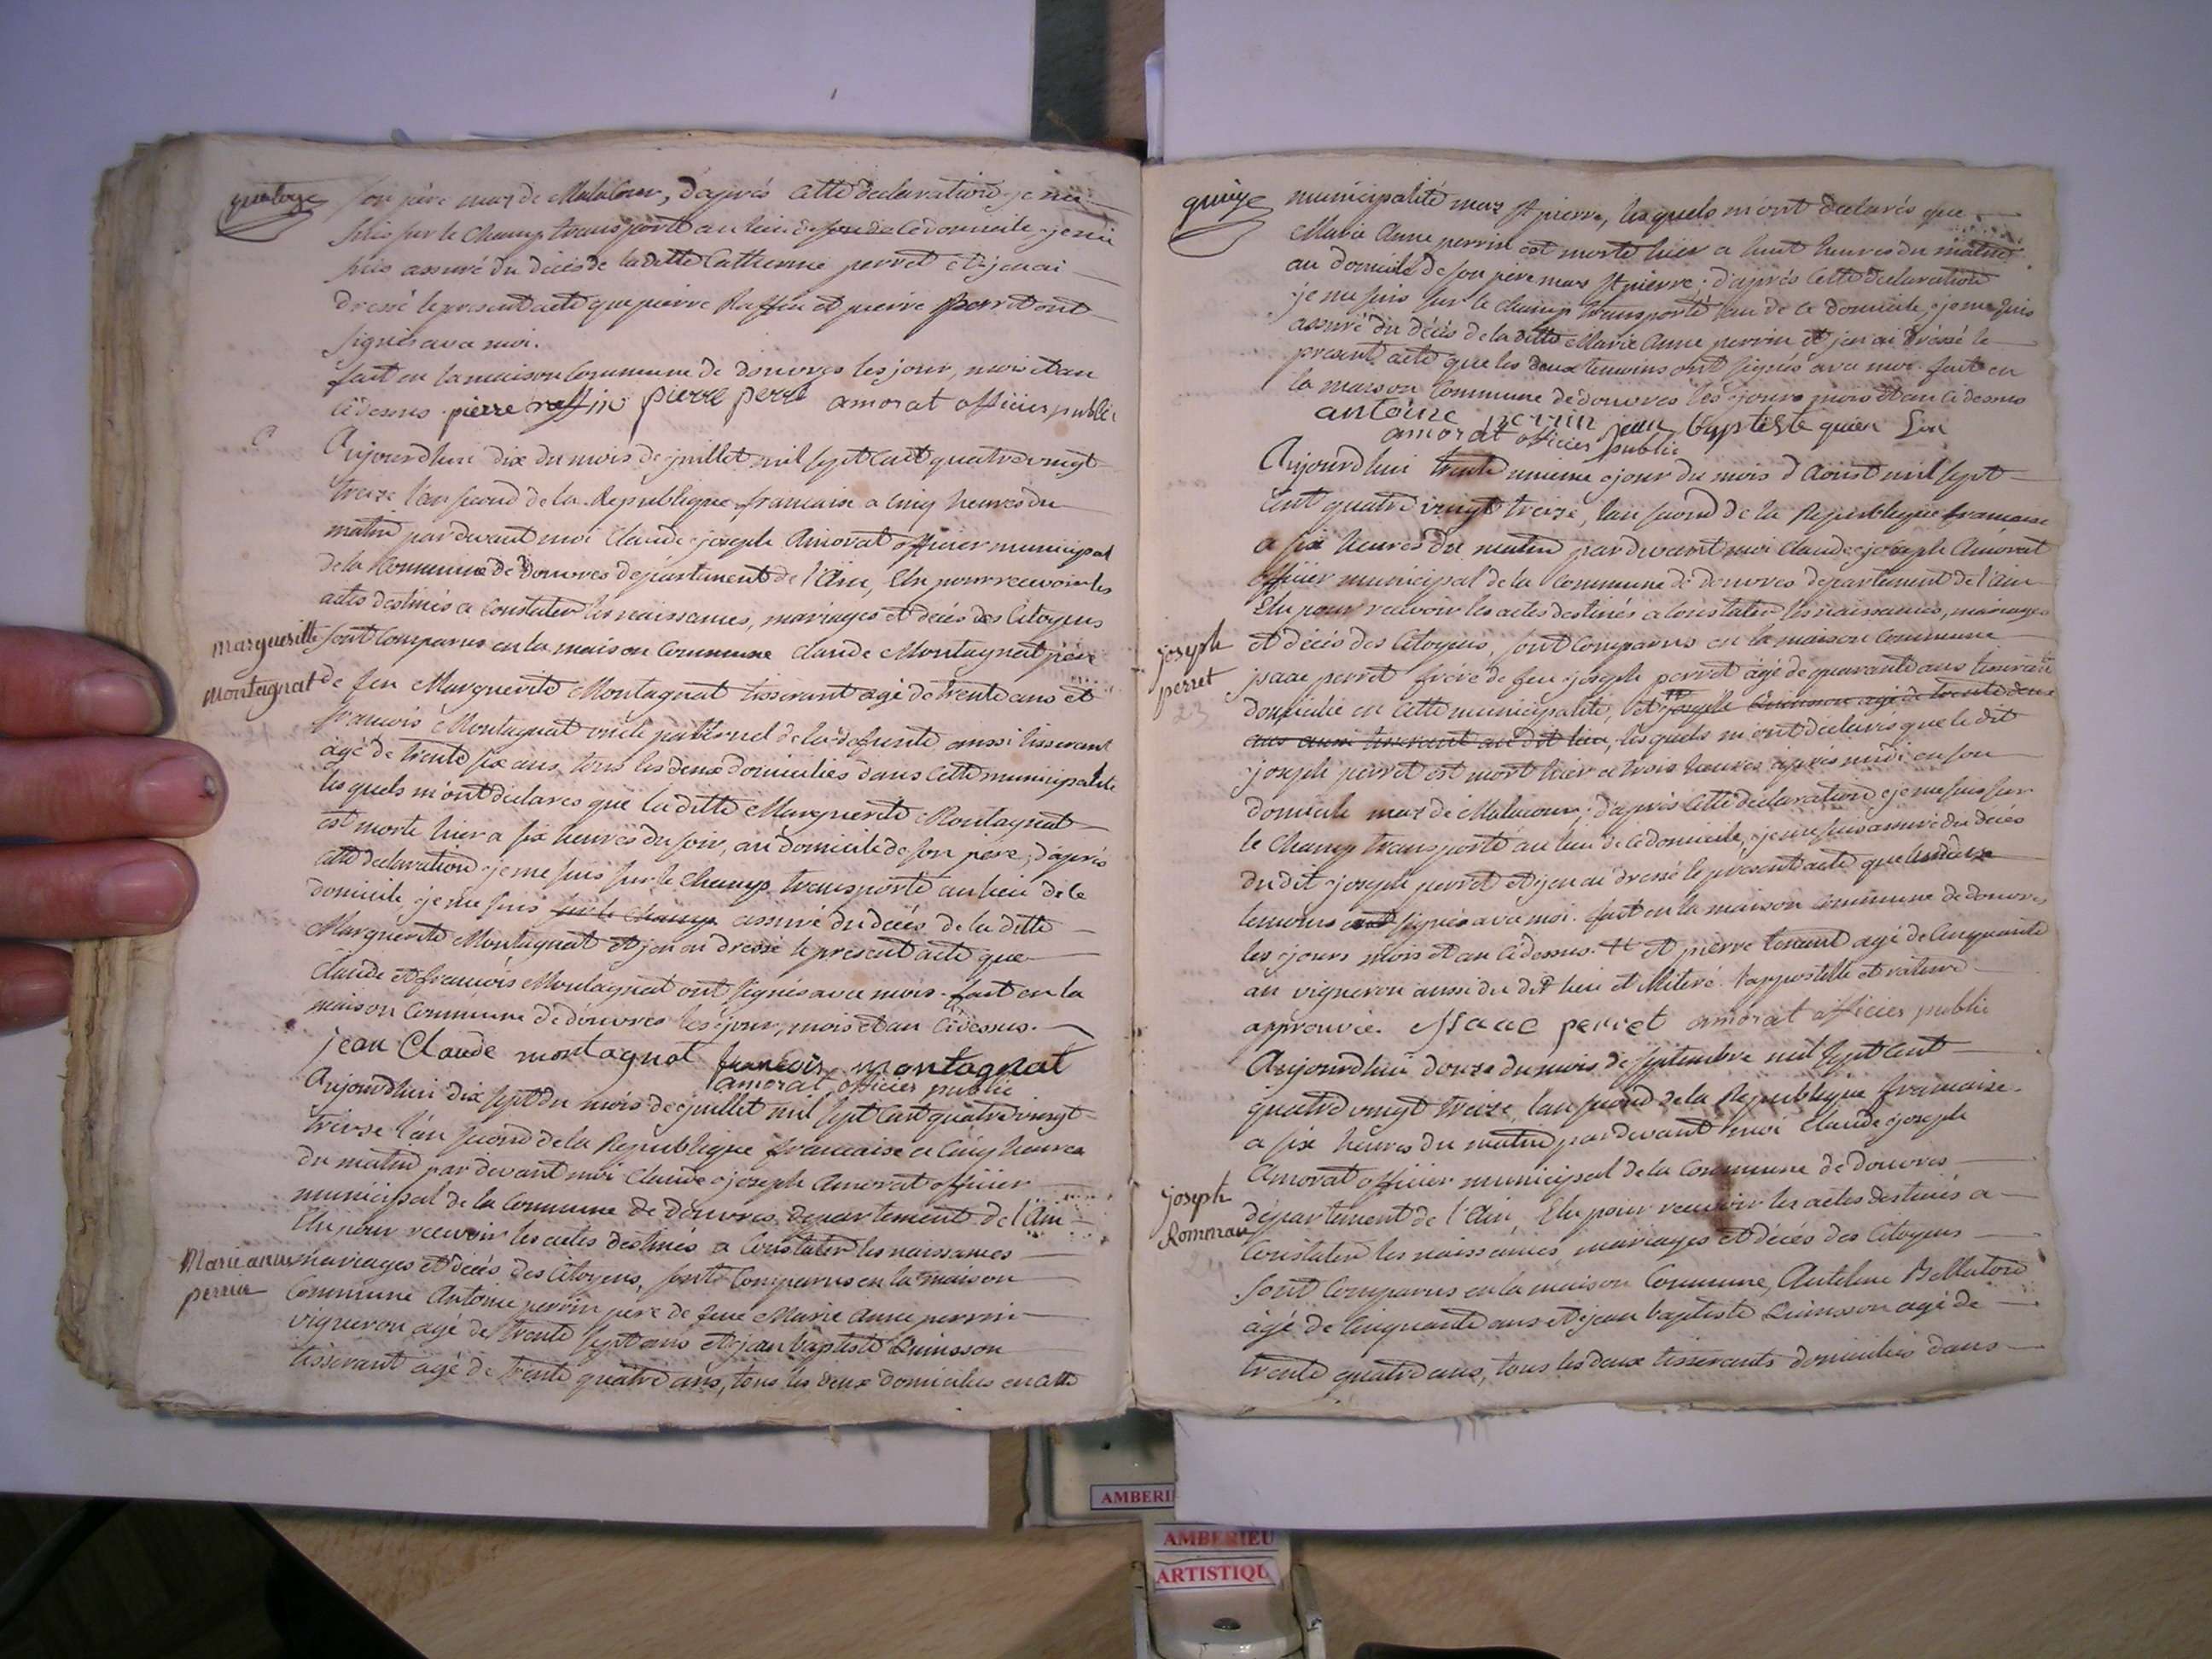 quatorze
son père maz de Malacour, d'après cette declaration je me
suis sur le champ transporté au lieu de ce domicile, je me
suis assuré du décès de la ditte Catherine perret et j'en ai
dressé le present acte que pierre Raffin et pierre perret ont
signés avec moi.
fait en la maison commune de douvres les jour, mois et an
cidessus. pierre raffin pierre perret amorat officier public
Aujourdhui dix du mois de juillet mil sept cent quatre vingt
treize l'an second de la Republique francaise a cinq heures du
matin par devant moi Claude joseph Amorat officier municipal
de la Commune de Douvres departement de l'Ain, Elu pour recevoir les
actes destinés a Constater les naissances, mariages et décès des Citoyens
margueritte
montagnat
sont Comparus en la maison Commune Claude Montagnat père
de feu Marguerite Montagnat tisserant agé de trente ans et
francois Montagnat oncle paternel de la defunte aussi tisserant
agé de trente six ans, tous les deux domiciliés dans cette municipalité
lesquels m'ont declarés que la ditte Marguerite Montagnat
est morte hier a six heures du soir, au domicile de son père, d'après
cette declaration je me suis sur le champ transporté au lieu de ce
domicile, je me suis sur le champ assuré du décès de la ditte
Marguerite Montagnat et j'en ai dressé le present acte que
Claude et francois Montagnat ont signés avec moi. fait en la
maison Commune de douvres les jour, mois et an cidessus.
jean Claude montagnat francois montagnat
amorat officier public
Aujourdhui dix sept du mois de juillet mil sept cent quatre vingt
treize l'an second de la Republique francaise a cinq heures
du matin par devant moi Claude joseph Amorat officier
municipal de la Commune de Douvres departement de l'Ain
Elu pour recevoir les actes destinés a Constater les naissances
Marie anne
perrin
mariages et décès des Citoyens, sont Comparus en la maison
Commune Antoine perrin père de feue Marie Anne perrin
vigneron agé de trente sept ans et jean baptiste Quinsson
tisserant agé de trente quatre ans, tous les deux domiciliés en cette
quinze
municipalité maz st pierre, lesquels m'ont declarés que
Marie Anne perrin est morte hier a huit heures du matin
au domicile de son père maz st pierre; d'après cette declaration
je me suis sur le champ transporté au de ce domicile, je me suis
assuré du décès de la ditte Marie Anne perrin et j'en ai dréssé le
present acte que les deux temoins ont signés avec moi. fait en
la maison Commune de douvres les jours mois et an cidessus
antoine perrin jean baptiste quien son
amorat officier public
Aujourdhui trente unieme jour du mois d'Aoust mil sept
cent quatre vingt treize, l'an second de la Republique francaise
a six heures du matin par devant moi Claude joseph Amorat
officier municipal de la Commune de douvres departement de l'ain
Elu pour recevoir les actes destinés a Constater les naissances, mariages
joseph
perret
23
et décès des Citoyens, sont Comparus en la maison Commune
jsaac perret frère de feu joseph perret agé de quarante ans tisserant
domicilié en cette municipalité, et joseph Quinsson agé de trente deux
ans aussi tisserant au dit lieu, lesquels m'ont declarés que le dit
joseph perret est mort hier a trois heures après midi en son
domicile maz de Malacour; d'après cette declaration je me suis sur
le champ transporté au lieu de ce domicile, je me suis assuré du décès
du dit joseph perret et j'en ai dressé le present acte que les deux
temoins ont signés avec moi. fait en la maison commune de douvres
les jours mois et an cidessus. # et pierre tenant agé de Cinquante
an vigneron aussi du dit lieu et Militré. l'appostille et rature
approuvée. jsaac perret amorat officier public
Aujourdhui douze du mois de septembre mil sept cent
quatre vingt treize l'an second de la Republique francaise
a six heures du matin par devant moi Claude joseph
Amorat officier municipal de la Commune de Douvres
joseph
Romman
département de l'Ain, Elu pour recevoir les actes destinés a
Constater les naissances mariages et décès des Citoyens
sont Comparus en la maison Commune, Antelme Bellaton
agé de Cinquante ans et jean baptiste Quinsson agé de
trente quatre ans, tous les deux tisserants domiciliés dans
AMBERI
AMBERIEU
ARTISTIQU